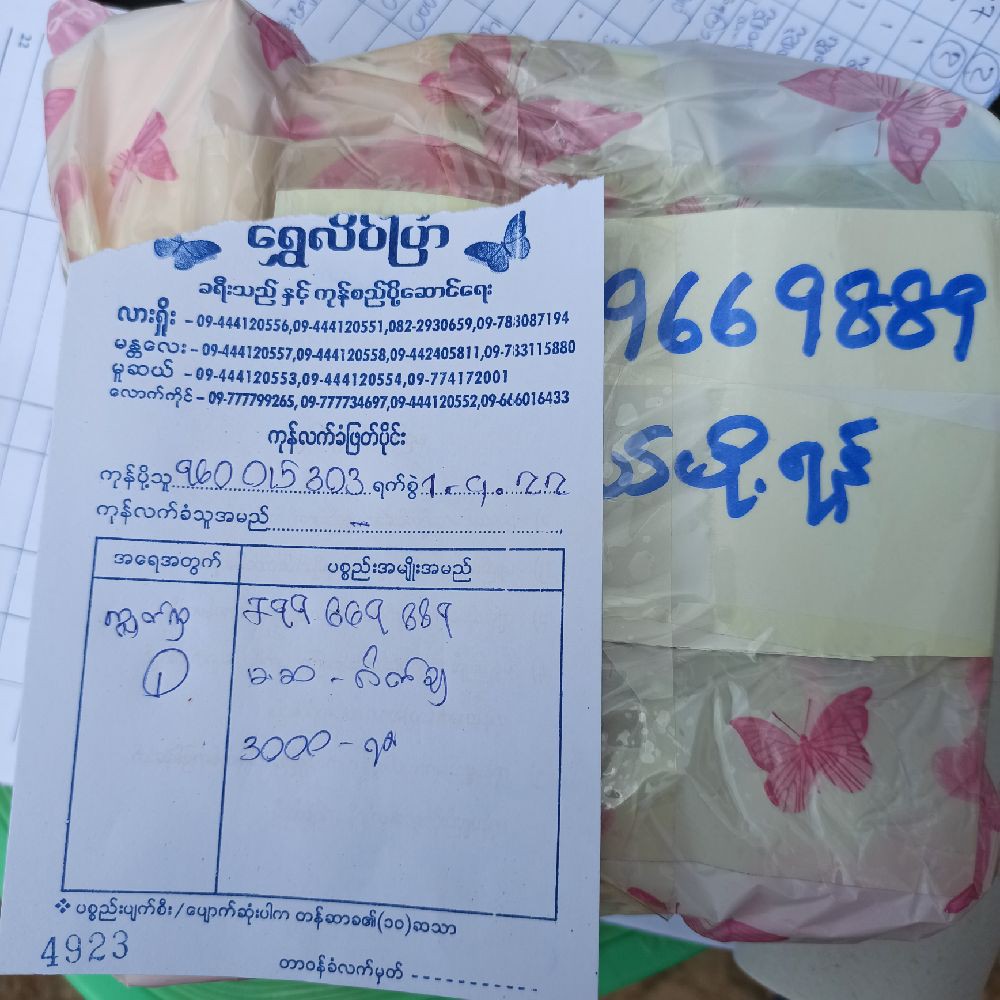 ရွှေလိပ်ပြာ
ခရီးသည် နှင့် ကုန်စည်ပို့ဆောင်ရေး
လားရှိုး - 09-444120556,09-444120551,082-2930659,09-783087194
မန္တလေး - 09-444120557,09-444120558,09-442405811,09-783115880
မူဆယ် - 09-444120553,09-444120554,09-774172001
လောက်ကိုင် - 09-777799265, 09-777734697,09-444120552,09-666016433
ကုန်လက်ခံဖြတ်ပိုင်း
ကုန်ပို့သူ 960 015 303 ရက်စွဲ ၁.၄.၂၂
ကုန်လက်ခံသူအမည်
အရေအတွက် ပစ္စည်းအမျိုးအမည်
669 889
①
3000 - ရှင်း
❖ ပစ္စည်းပျက်စီး/ပျောက်ဆုံးပါက တန်ဆာခ၏(၁၀)ဆသာ
4923
တာဝန်ခံလက်မှတ်
9669889
ပို့ ရန်
22